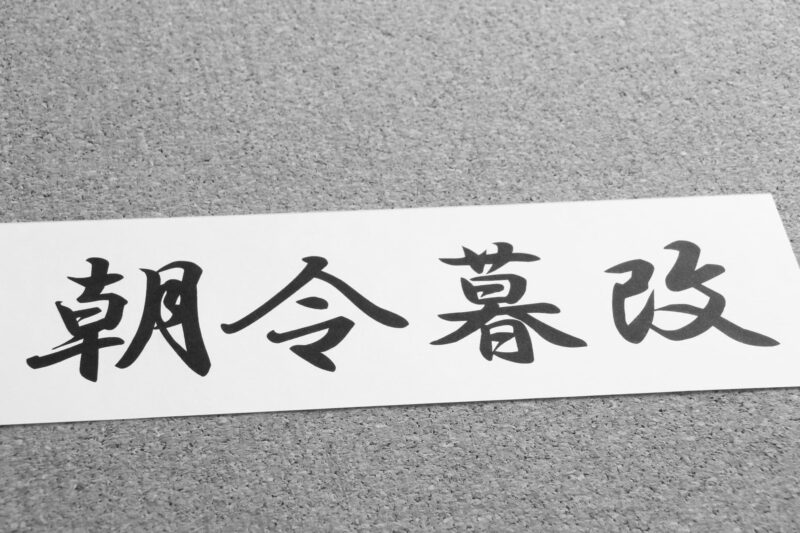 朝令暮改